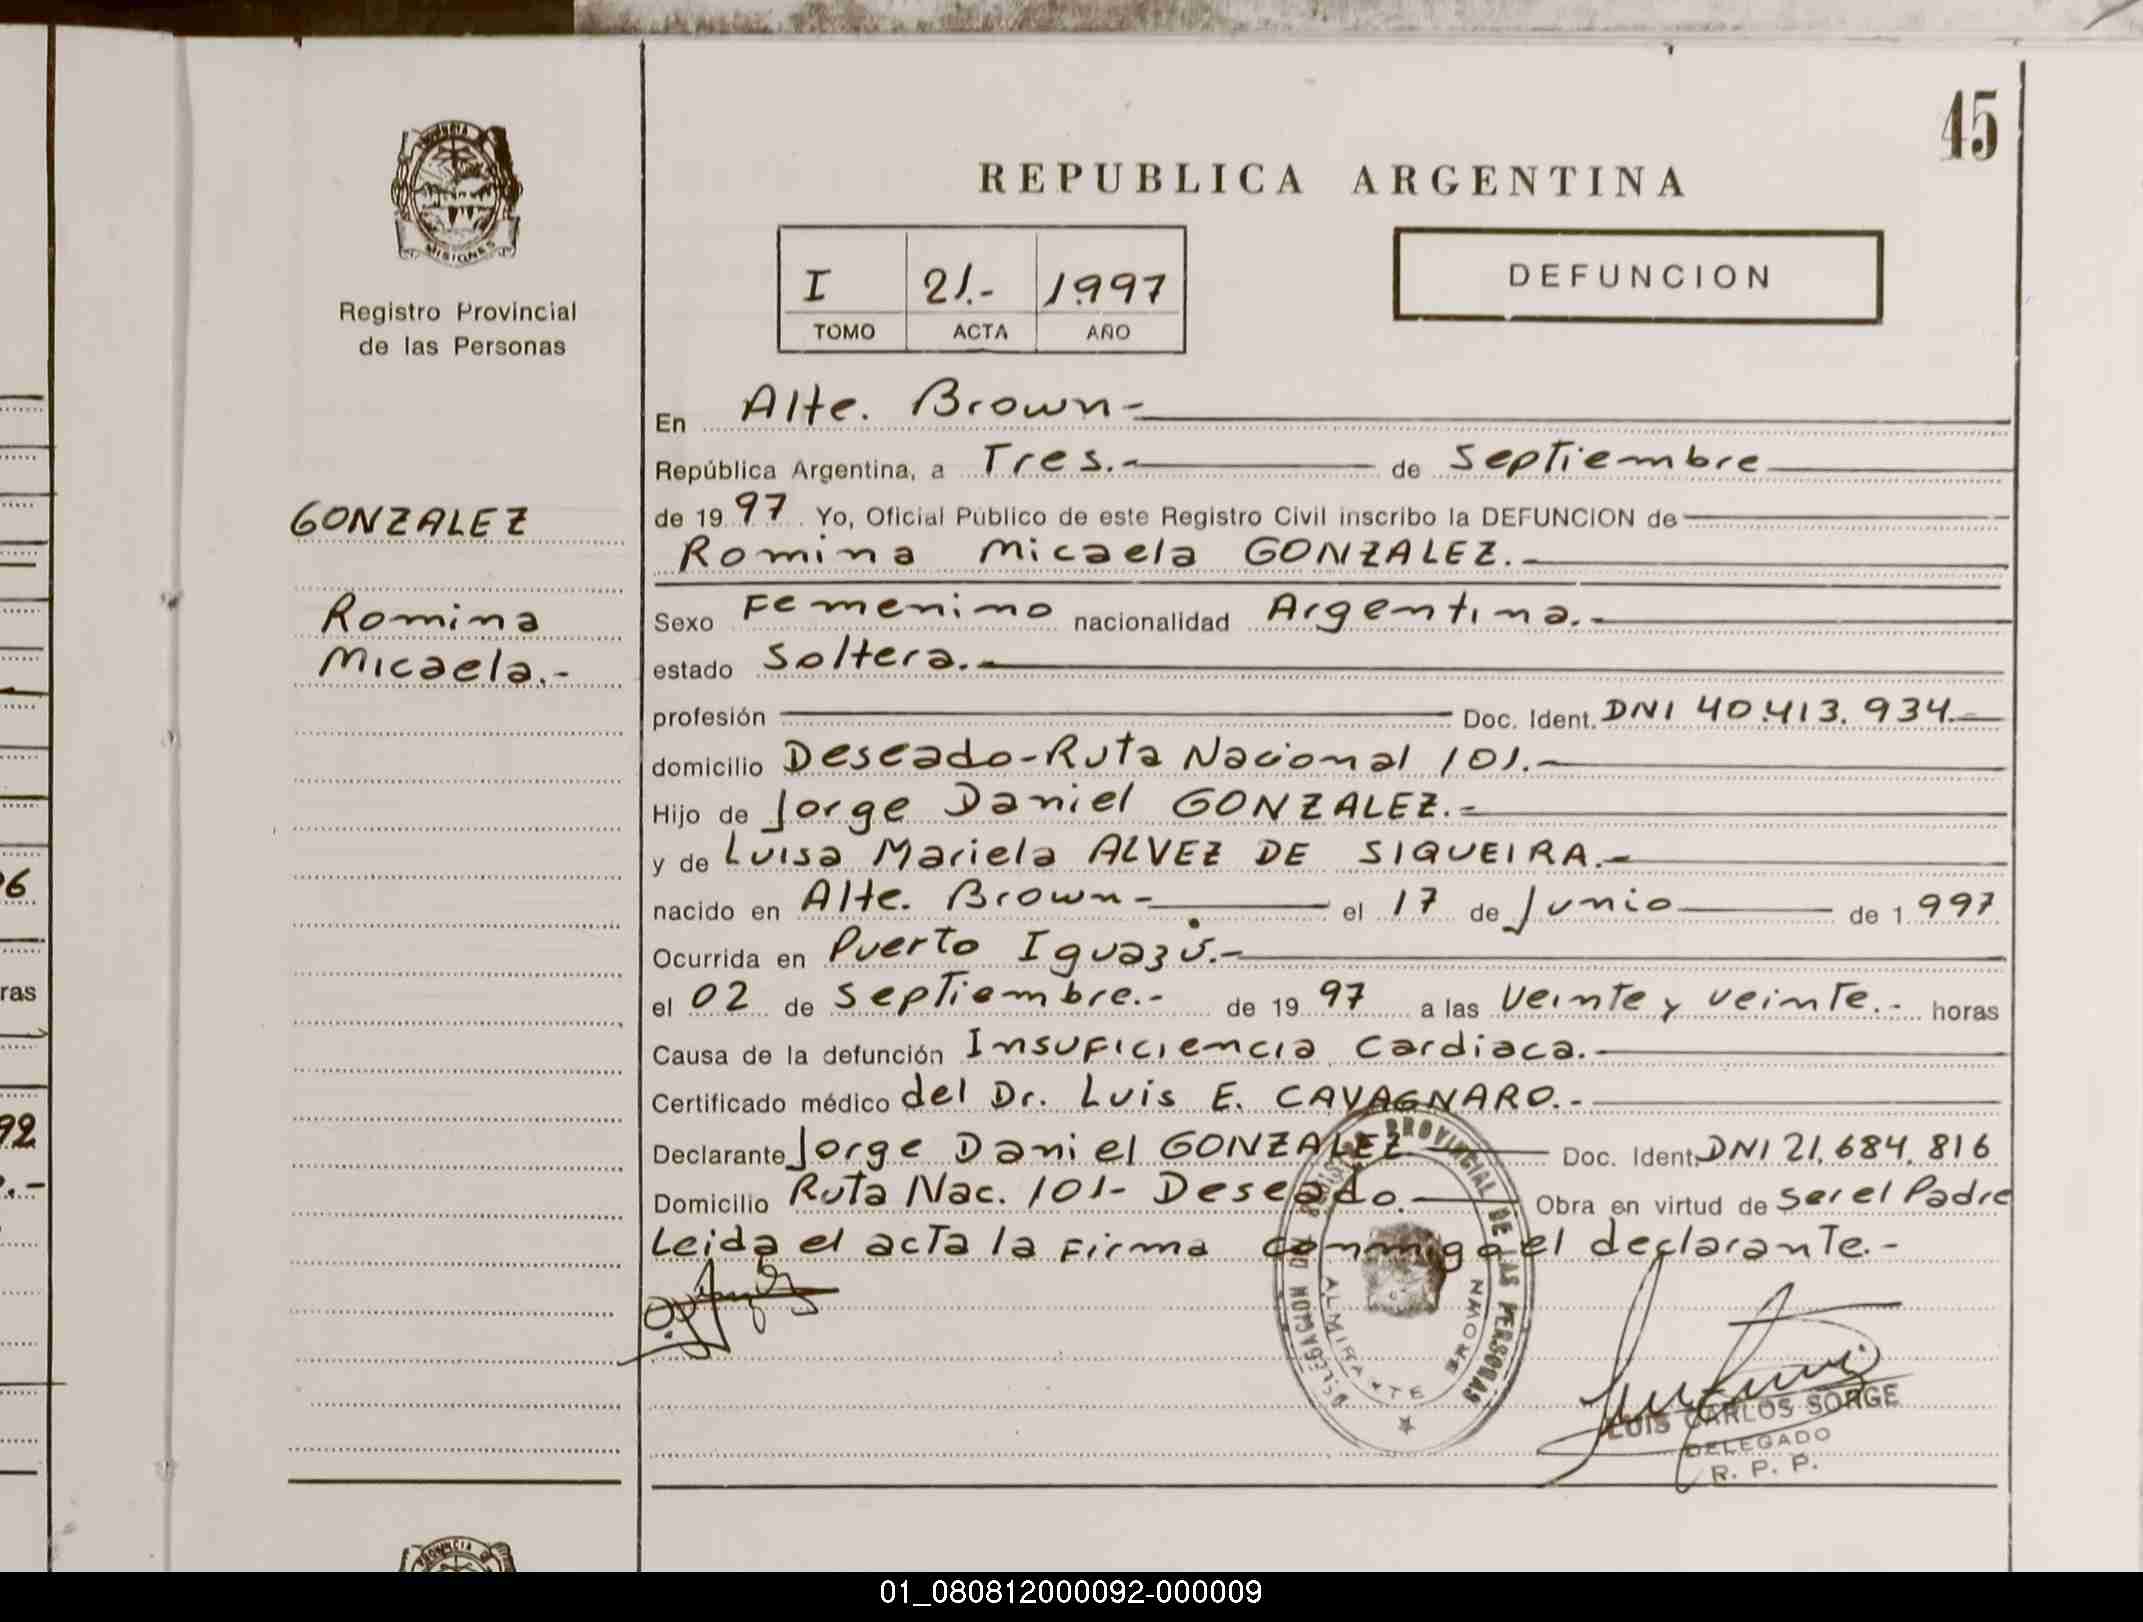 45
REPUBLICA ARGENTINA
PROVINCIA
MISIONES
Registro Provincial
de las Personas
I 21.- 1.997
TOMO ACTA AÑO
DEFUNCION
GONZALEZ
Romina
Micaela.-
En Alte. Brown-
República Argentina, a Tres.- de Septiembre
de 19 97 Yo, Oficial Público de este Registro Civil inscribo la DEFUNCION de
Romina Micaela GONZALEZ.-
Sexo Femenino nacionalidad Argentina.-
estado Soltera.-
profesión Doc. Ident. DNI 40.413.934.-
domicilio Deseado-Ruta Nacional 101.-
Hijo de Jorge Daniel GONZALEZ.-
y de Luisa Mariela ALVEZ DE SIQUEIRA.-
nacido en Alte. Brown- el 17 de Junio de 1 997
Ocurrida en Puerto Iguazú.-
el 02 de septiembre.- de 19 97 a las veinte y veinte.- horas
Causa de la defunción Insuficiencia Cardiaca.-
Certificado médico del Dr. Luis E. CAVAGNARO.-
Declarante Jorge Daniel GONZALEZ Doc. Ident. DNI 21.684.816
Domicilio Ruta Nac. 101- Deseado. Obra en virtud de ser el Padre
Leida el acta la firma conmigo el declarante.-
DELEGACION DEL REGISTRO PROVINCIAL DE LAS PERSONAS
ALMIRANTE BROWN
LUIS CARLOS SORGE
DELEGADO
R. P. P.
96
ras
92
.-
PROVINCIA
01_080812000092-000009